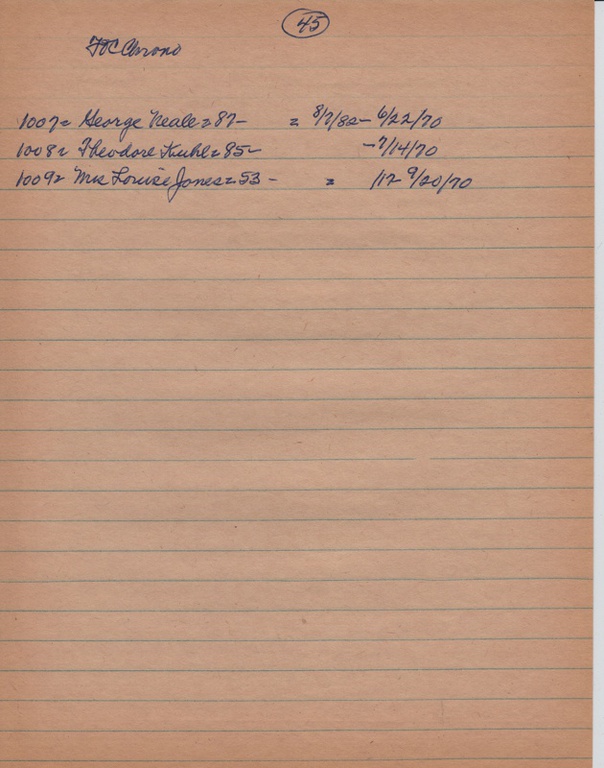 45
Chrono
1007= George Neale = 87- = 8/7/82- 6/22/70
1008= Theodore Kuhl = 85- -7/14/70
1009= Mrs Louise Jones = 53- = 9/20/70